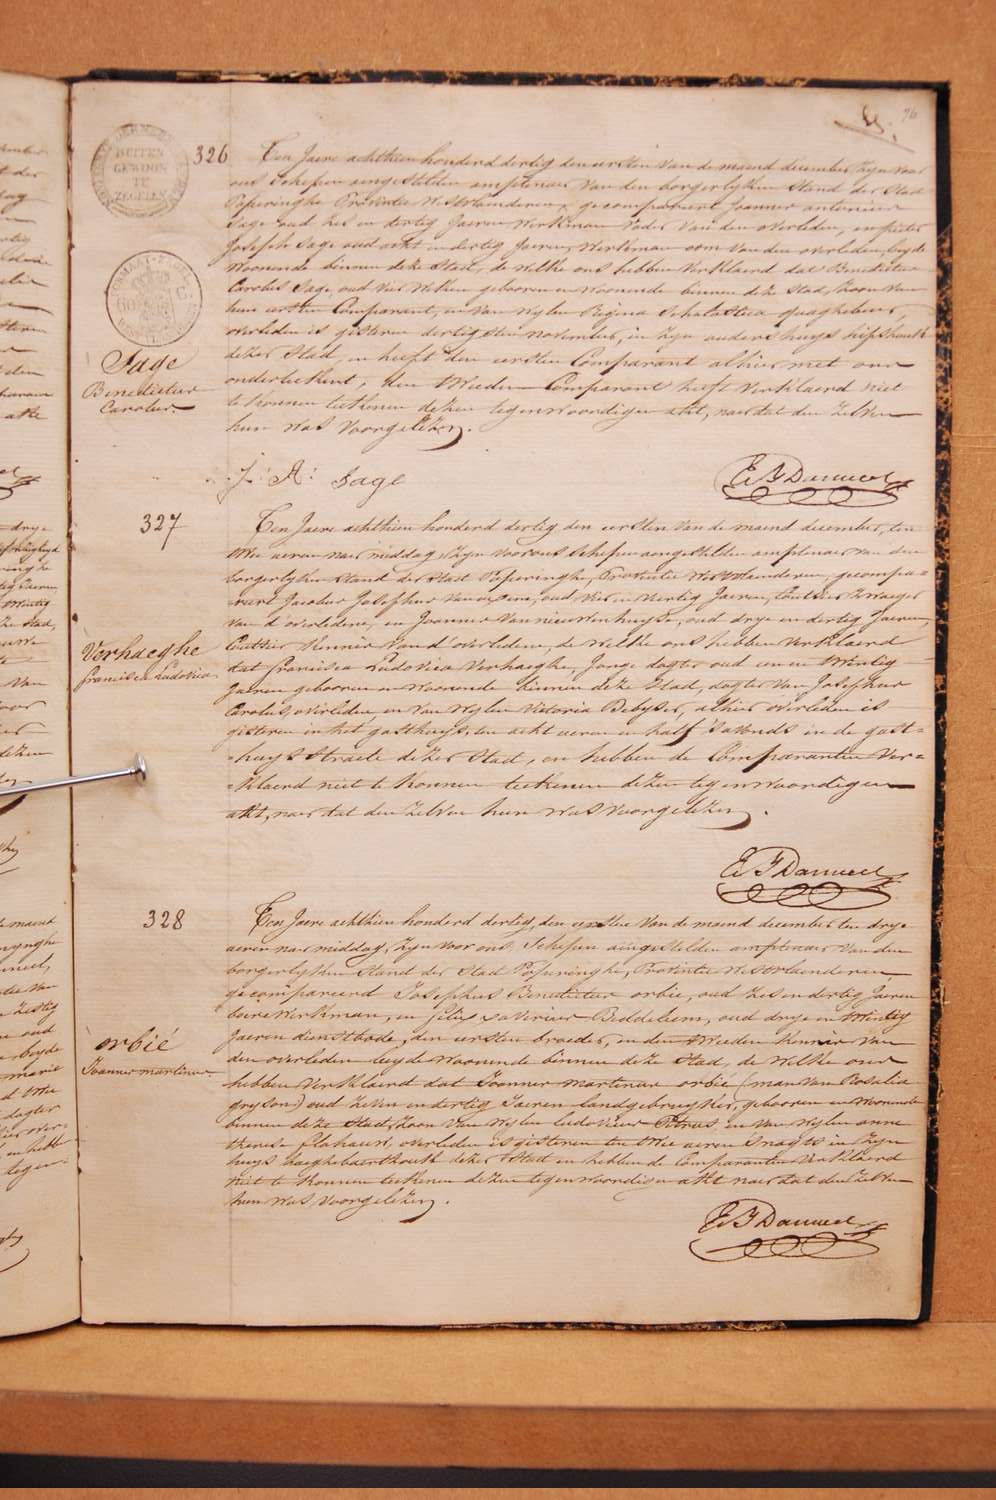 76
BUITEN
GEWOON
TE
ZEGELEN
326
Ten Jaere achthien honderd dertig den eersten van de maend december zyn voor
ons Schepen aengestelden amptenaer van den borgerlyken Stand der Stad
Poperinghe Provintie Westvlaenderen, gecompareert Joannes antonius
Sage oud zes en dertig Jaeren Werkman Vader van den overleden, en pieter
Joseph Sage oud acht en dertig Jaeren, Werkman oom van den overleden, beyde
Woonende binnen deze Stad, de welke ons hebben verklaerd dat Benedictus
Carolus Sage, oud vier weken gebooren en Woonende binnen deze Stad, zoon van
hun eersten Comparant, en van wylen Regina Scholastica quaghebeur,
overleden is gisteren dertigsten november, in zyn ouders huys
dezer Stad, en heeft den eersten Comparant alhier met ons
onderteekent, den tweeden Comparant heeft verklaerd niet
te konnen teekenen dezen tegenwoordigen akt, naer dat den zelven
hun was voorgelezen.
Sage
Benedictus
Carolus
J: A: Sage
E F Dauweel
327
Ten Jaere achthien honderd dertig den eersten van de maend december, ten
twee ueren naer middag, zyn voor ons Schepen aengestelden amptenaer van den
borgerlyken Stand der Stad Poperinghe, Provintie Westvlaenderen, gecompa=
reert Jacobus Josephus Van , oud vier en veertig Jaeren,
van d'overledene, en Joannes Vannieuwenhuyse, oud drye en dertig Jaeren,
kennis van d'overledene, de welke ons hebben verklaerd
dat francisca Ludovica Verhaeghe, Jonge dogter oud een en twintig
Jaeren gebooren en woonende binnen deze Stad, dogter van Josephus
Carolus, overleden en van wylen Victoria Debyser, alhier overleden is
gisteren in het gasthuys, ten acht ueren en half s'avonds in de gast=
=huys Straete dezer Stad, en hebben de Comparanten ver=
=klaerd niet te konnen teekenen dezen tegenwoordigen
akt, naer dat den zelven hun was voorgelezen.
Verhaeghe
francisca Ludovica
E F Dauweel
328
Ten Jaere achthien honderd dertig, den eersten van de maend december ten drye
ueren naer middag, zyn voor ons, Schepen aengestelden amptenaer van den
borgerlyken Stand der Stad Poperinghe, Provintie Westvlaenderen,
gecompareerd Josephus Benedictus orbie, oud zes en dertig Jaeren
boere werkman, en felix xaverius Beddeleem, oud drye en twintig
Jaeren dienstbode, den eersten broeder, en den tweeden kennis van
den overleden beyde woonende binnen deze Stad, de welke ons
hebben verklaerd dat Joannes martinus orbié (man van Rosalia
gryson) oud zeven en dertig Jaeren landgebruyker, gebooren en woonende
binnen deze Stad, zoon van wylen ludovicus Petrus, en van wylen anne
therese flahaux, overleden is gisteren ten twee ueren s'nagts in zyn
huys haeghebaerthouck dezer Stad en hebben de Comparanten verklaerd
niet te konnen teekenen dezen tegenwoordigen akt naer dat den zelven
hun was voorgelezen.
orbié
Joannes martinus
E F Dauweel